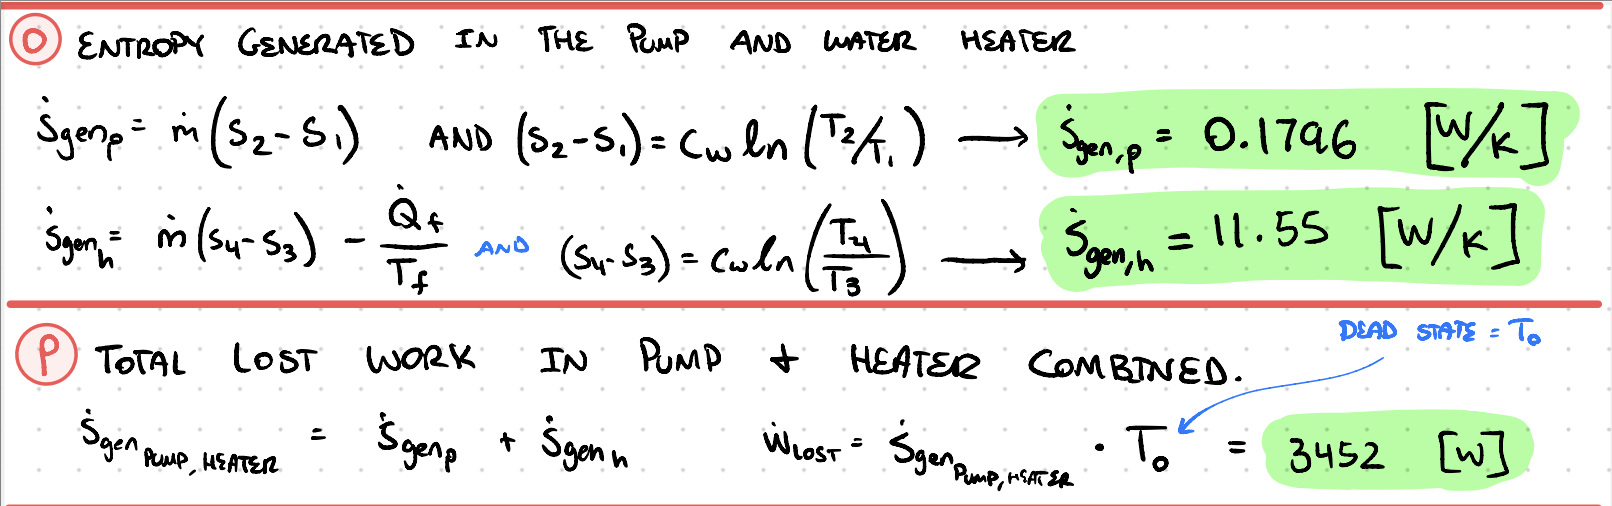 O ENTROPY GENERATED IN THE PUMP AND WATER HEATER
Ṡgen_p = ṁ(S₂-S₁) AND (S₂-S₁) = C_w ln(T₂/T₁) → Ṡgen,p = 0.1796 [W/K]
Ṡgen_h = ṁ(S₄-S₃) - Q̇_f/T_f AND (S₄-S₃) = C_w ln(T₄/T₃) → Ṡgen,h = 11.55 [W/K]
P TOTAL LOST WORK IN PUMP + HEATER COMBINED.
DEAD STATE = T₀
Ṡgen_PUMP,HEATER = Ṡgen_p + Ṡgen_h Ẇ_LOST = Ṡgen_PUMP,HEATER · T₀ = 3452 [W]